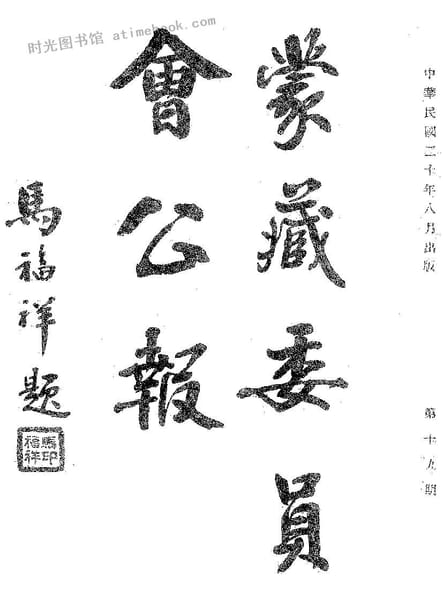 时光图书馆 atimebook.com
中華民國二十年八月出版
第十九期
蒙藏委員
會公報
馬福祥題
馬福祥印